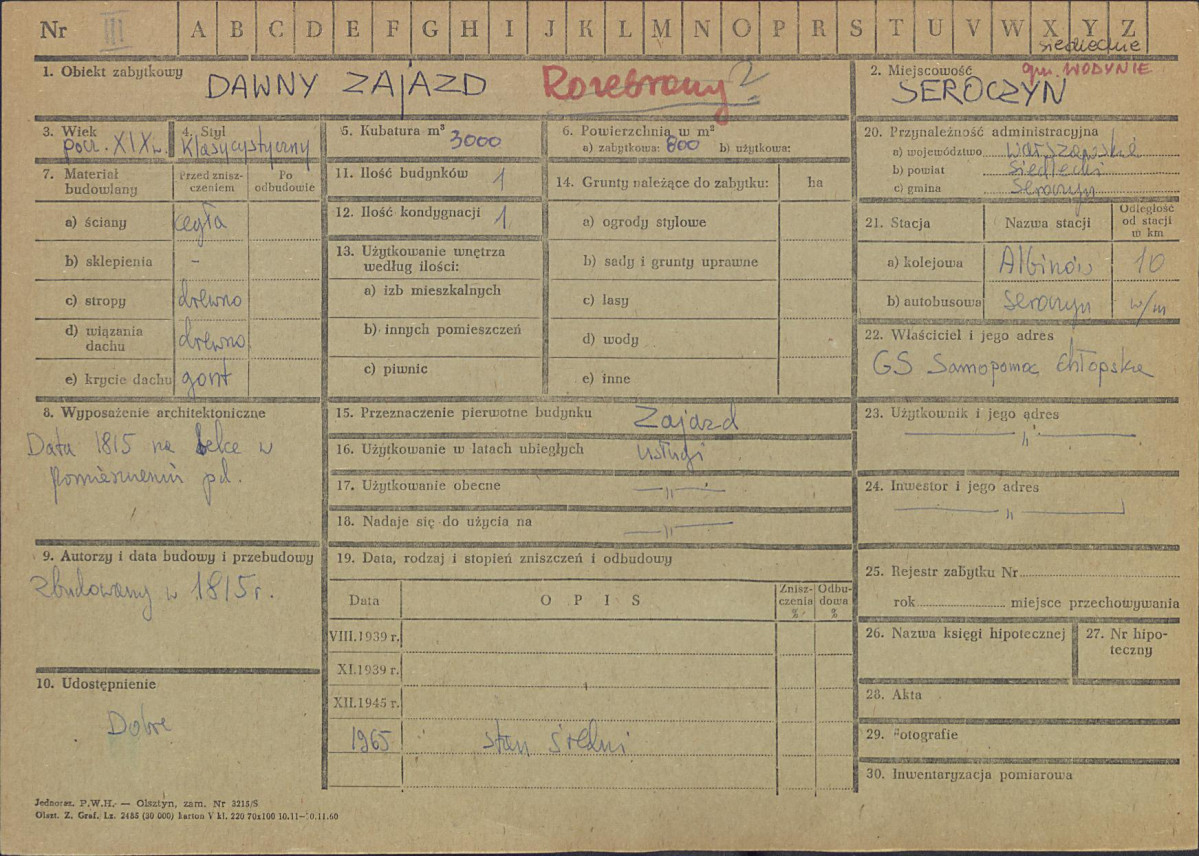 Nr III A B C D E F G H I J K L M N O P R S T U V W X Y Z
siedleckie
1. Obiekt zabytkowy DAWNY ZAJAZD Rozebrany ?
2. Miejscowość gm. WODYNIE
SEROCZYN
3. Wiek pocz. XIX w.
4. Styl Klasycystyczny
5. Kubatura m³ 3000
6. Powierzchnia w m²
a) zabytkowa: 800 b) użytkowa:
7. Materiał budowlany
Przed zniszczeniem
Po odbudowie
a) ściany cegła
b) sklepienia –
c) stropy drewno
d) wiązania dachu drewno
e) krycie dachu gont
8. Wyposażenie architektoniczne
Data 1815 na belce w
pomieszczeniu pd.
9. Autorzy i data budowy i przebudowy
Zbudowany w 1815 r.
10. Udostępnienie
Dobre
11. Ilość budynków 1
12. Ilość kondygnacji 1
13. Użytkowanie wnętrza
według ilości:
a) izb mieszkalnych
b) innych pomieszczeń
c) piwnic
14. Grunty należące do zabytku: ha
a) ogrody stylowe
b) sady i grunty uprawne
c) lasy
d) wody
e) inne
15. Przeznaczenie pierwotne budynku Zajazd
16. Użytkowanie w latach ubiegłych usługi
17. Użytkowanie obecne —"—
18. Nadaje się do użycia na —"—
19. Data, rodzaj i stopień zniszczeń i odbudowy
Data OPIS Zniszczenia % Odbudowa %
VIII.1939 r.
XI.1939 r.
XII.1945 r.
1965 stan średni
20. Przynależność administracyjna
a) województwo warszawskie
b) powiat Siedlecki
c) gmina Seroczyn
21. Stacja Nazwa stacji Odległość od stacji w km
a) kolejowa Albinów 10
b) autobusowa Seroczyn w/m
22. Właściciel i jego adres
GS Samopomoc Chłopska
23. Użytkownik i jego adres
—"—
24. Inwestor i jego adres
—"—
25. Rejestr zabytku Nr
rok miejsce przechowywania
26. Nazwa księgi hipotecznej
27. Nr hipoteczny
28. Akta
29. Fotografie
30. Inwentaryzacja pomiarowa
Jednoraz. P.W.H. — Olsztyn, zam. Nr 3215/S
Olszt. Z. Graf. Lz. 2485 (30 000) karton V kl. 220 70x100 10.11—10.11.60